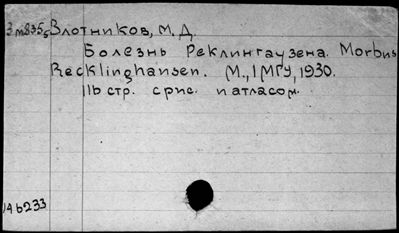 Злотников, М. Д.
Болезнь Реклингаузена. Morbus
Recklinghansen. М., 1 МГУ, 1930.
116 стр. с рис. и атласом.